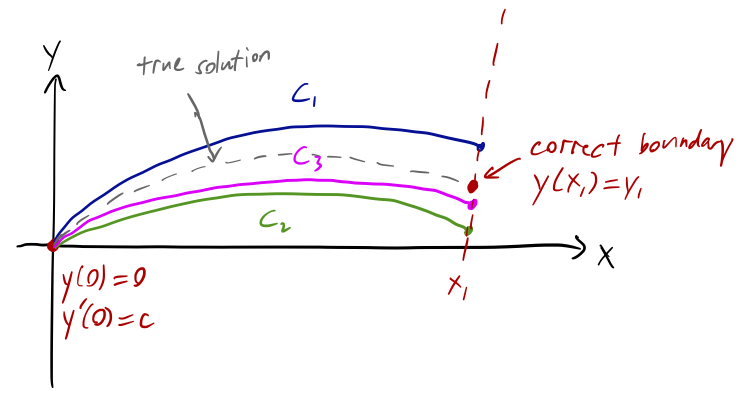 y
true solution
C₁
C₃
correct boundary
y(x₁)=y₁
C₂
x
y(0)=0
y'(0)=c
x₁